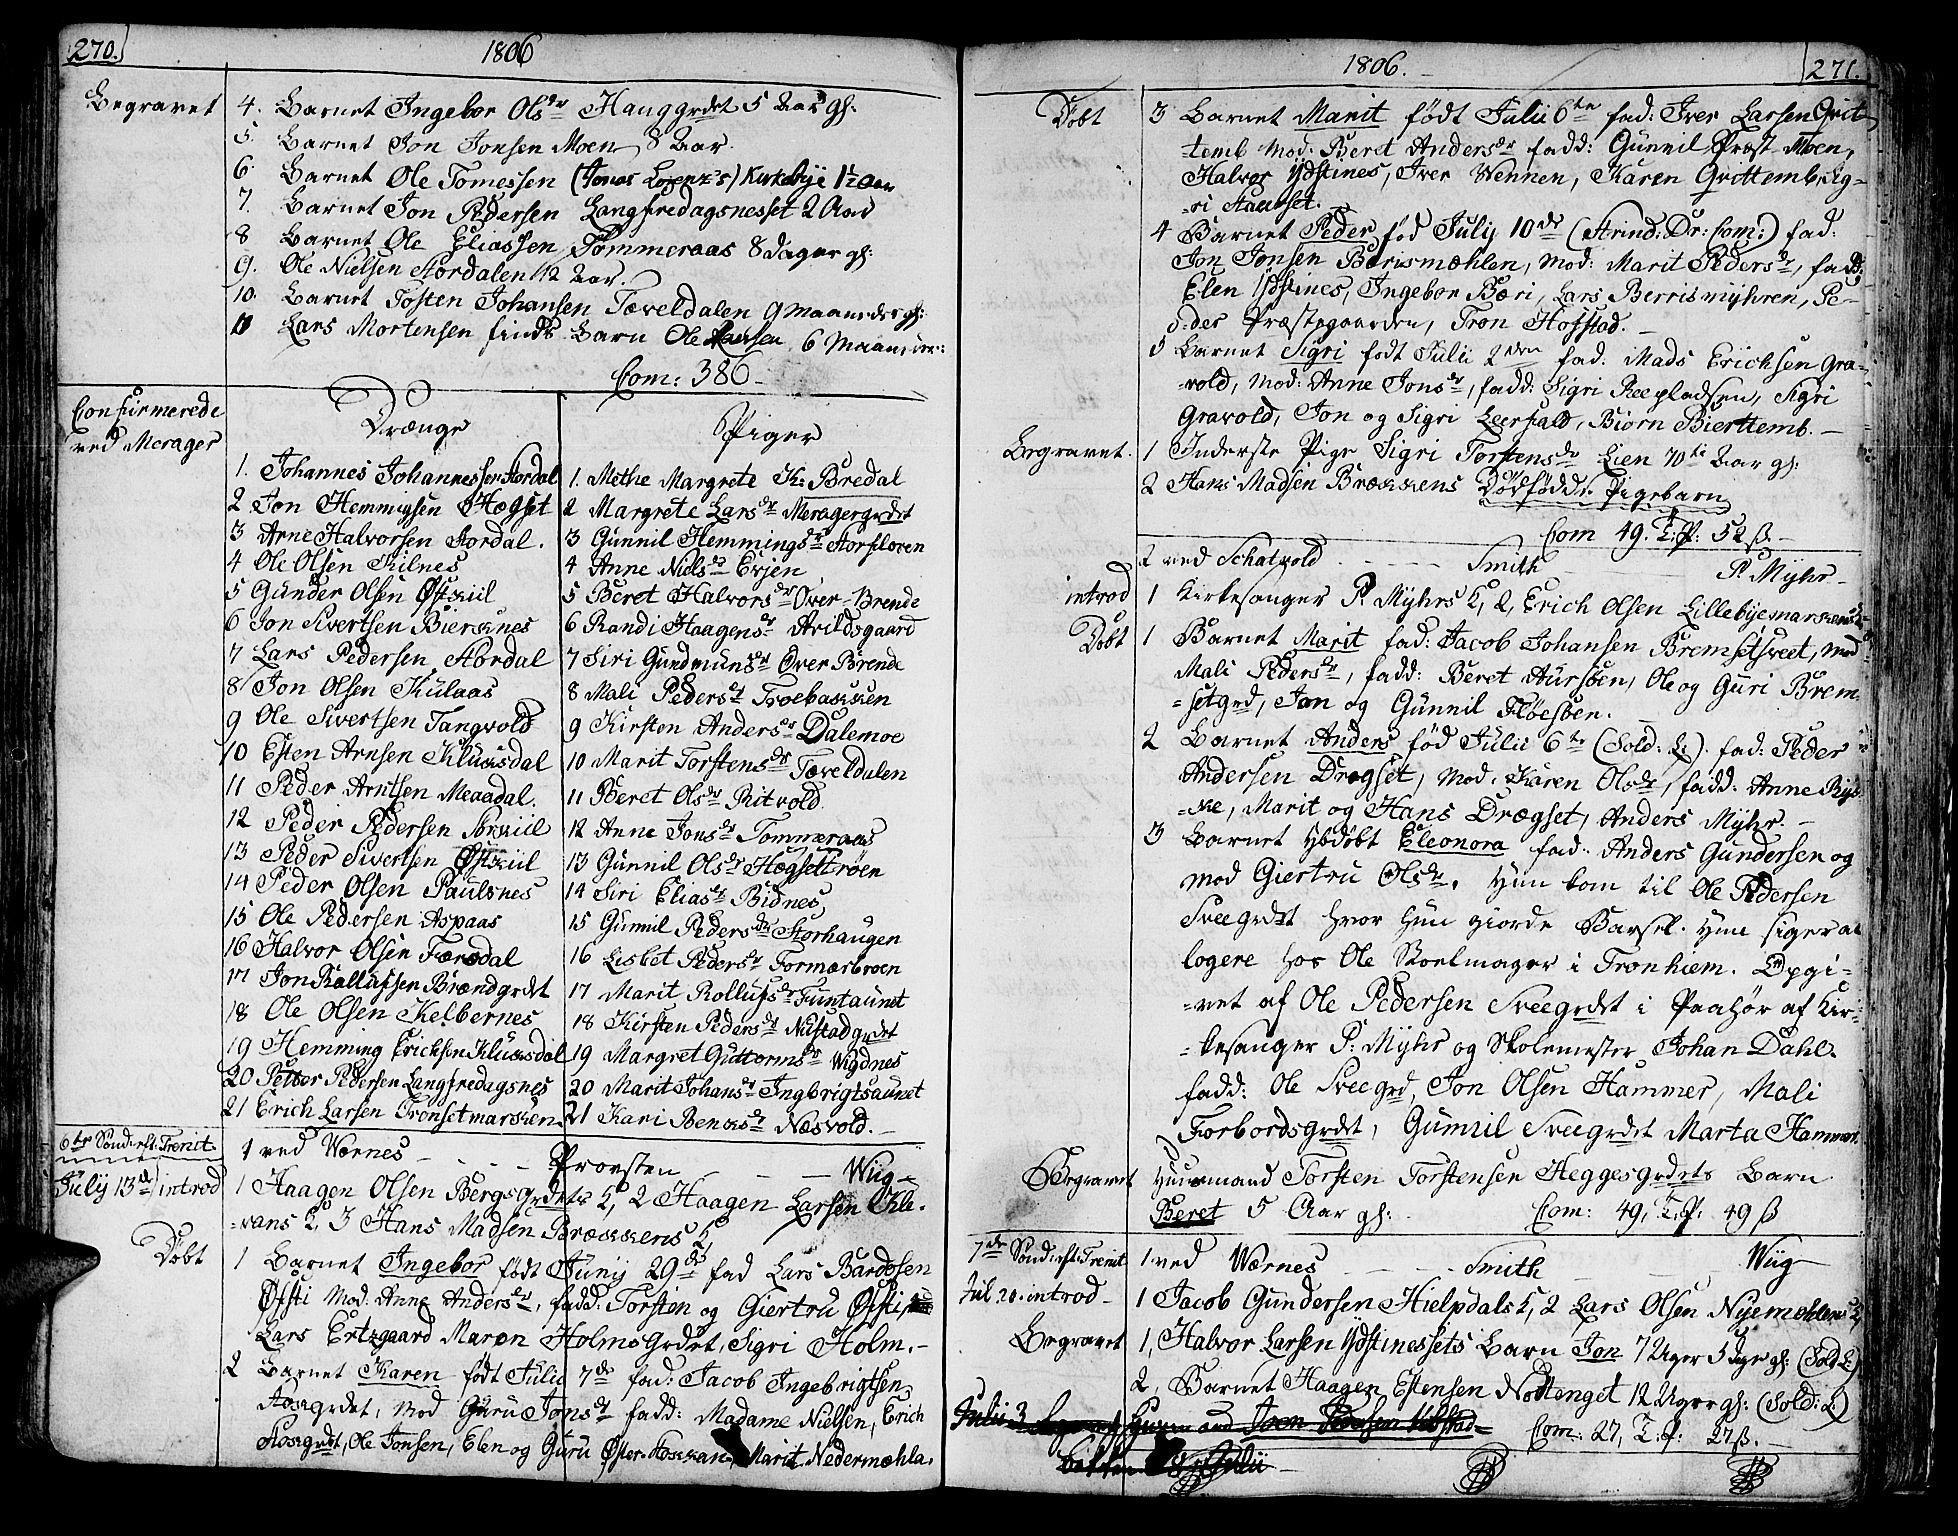 270.
1806
Begravet
4. Barnet Ingebor Olsdr Hauggrdet 5 Aar gl:
5. Barnet Jon Jonsen Moen 8 Aar.
6. Barnet Ole Tomessen (Jonas Lorenz's) Kirkebye 1½ Aar
7. Barnet Jon Pedersen Langfredagsnesset 2 Aar
8 Barnet Ole Eliassen Tømmeraas 8 dager gl:
9. Ole Nielsen Stordalen 42 Aar.
10. Barnet Tosten Johansen Tæveldalen 9 maaneder gl:
11 Lars Mortensen finds Barn Ole Larsen 6 Maaneder:
Com: 386-
Confirmerede
ved Merager
Drænge
1. Johannes Johannessen Stordal
2 Jon Hemmigsen Hægset
3 Arne Halvorsen Stordal.
4 Ole Olsen Kilnes
5 Gunder Olsen Østkiil
6 Jon Sivertsen Bierknes
7 Lars Pedersen Stordal
8 Jon Olsen Kulaas
9 Ole Sivertsen Tangvold
10 Esten Arnsen Kluksdal
11 Peder Arntsen Meaadal.
12 Peder Pedersen Sørkiil
13 Peder Sivertsen Østkiil
14 Peder Olsen Paulsnes
15 Ole Pedersen Aspaas
16 Halvor Olsen Færsdal
17 Jon Rollufssen Brændgrdet
18 Ole Olsen Kelbernes
19 Hemming Erichsen Kluksdal
20 Petter Pedersen Langfredagsnes
21 Erich Larsen Trønsetmarken
Piger
1. Methe Margrete K: Bredal
2 Margrete Larsdr Meragergrdet
3 Gunnil Hemmingsdr Storfloren
4 Anne Nielsdr Evjen
5 Beret Halvorsdr Over-Brende
6 Randi Haagensdr Arildsgaard
7 Siri Gundmunsdr Over Brende
8 Mali Pedersdr Troebakken
9 Kirsten Andersdr Dalemoe
10 Marit Torstensdr Tæveldalen
11 Beret Olsdr Ritvold.
12 Anne Jonsdr Tømmeraas
13 Gunnil Olsdr Hægsetrøen
14 Siri Eliasdr Bidnes
15 Gunnil Pedersdr Storhaugen
16 Lisbet Pedersdr Formærbroen
17 Marit Rollufsdr Funtaunet
18 Kirsten Pedersdr Nustadgrdet
19 Margret Guttormsdr Wydnes
20 Marit Johansdr Ingbrigtsaunet
21 Kari Benksdr Næsvold.
6te Sønd: eft: Trenit.
July 13d introd
1 ved Wærnes - - - Provsten - - - Wiig-
1 Haagen Olsen Bergsgrdets K, 2 Haagen Larsen Kle-
-vans K, 3 Hans Madsen Brækkens K,
Døbt
1 Barnet Ingebor født Junij 29de fad Lars Bardosen
Øfsti mod: Anne Andersdr, fadd: Torsten og Giertru Øfsti
Lars Ertzgaard Maren Holmsgrdet, Sigri Holm.-
2 Barnet Karen født Julii 7de fad: Jacob Ingebrigtsen
Aasgrdet, mod Guru Jonsdr fadd: Madame Nielsen, Erich
Hosgrdet, Ole Jonsen, Elen og Guru Øster , Marit Nedermæhla.
1806.
271.
Døbt
3 Barnet Marit født Julii 6te fad: Iver Larsen Grit-
-temb mod: Beret Andersdr fadd: Gunnil Præst-Moen,
Halvor Ydstines, Iver Wennen, Karen Grittemb, Sig-
-ri .
4 Barnet Peder fød July 10de (Strind: Dr: Com:) fad:
Jon Jonsen Borismæhlen, mod: Marit Pedersdr, fadd:
Elen Ydstines, Ingebor Bæri, Lars Berrismyhren, Pe-
d-der Præstegaarden, Tron Hofstad.-
5 Barnet Sigri født Julii 2den fad: Mads Erichsen Gra-
-vold, mod: Anne Jonsdr, fadd: Sigri Reepladsen, Sigri
Gravold, Jon og Sigri Leerfald, Biørn Bierttemb.-
Begravet.
1 Inderste Pige Sigri Torstensdr Lien 70te Aar gl:
2 Hans Madsen Brækkens Dødfødde Pigebarn
Com 49. T: P: 52 ß.-
2 ved Schatvold - - - Smith - - P: Myhr-
introd
1 Kirkesanger P: Myhrs K, 2, Erich Olsen Lillebyemarkens K
Døbt
1 Barnet Marit fad: Jacob Johansen Bremsetsveet, mod
Mali Pedersdr, fadd: Beret Aursøen, Ole og Guri Brem-
-setgrd, Jon og Gunnil Fløesøen.
2 Barnet Anders fød Julii 6te (Sold: L:) fad: Peder
Andersen Drogset, mod. Karen Olsdr, fadd: Anne Ryk-
-ke, Marit og Hans Drægset, Anders Myhr.-
3 Barnet Hdøbt Eleonora fad: Anders Gundersen og
mod Giertru Olsdr. Hun kom til Ole Pedersen
Sveegrdet hvor hun giorde Barsel. Hun siger at
logere hos Ole Stoelmager i Tronhiem. Opgi-
-vet af Ole Pedersen Sveegrdet i Paahør af Kir-
-kesanger P: Myhr og Skolemester Johan Dahl.
fadd: Ole Sveegrd, Jon Olsen Hammer, Mali
Forbordsgrdet, Gunnil Sveegrdet Marta Hammer.
Begravet
Huusmand Torsten Torstensen Heggesgrdets Barn
Beret 5 Aar gl: Com: 49, T: P: 49 ß
7de Sønd: eft: Trenit
Jul 20. introd-
1 ved Wærnes - - - Smith - - - Wiig-
1 Jacob Gundersen Hielpdals K, 2 Lars Olsen Nyemæhlens K,
Begravet
1, Halvor Larsen Ydstinessets Barn Jon 7 Uger 5 Dage gl: (Sold L:)
2, Barnet Haagen Estensen Nottenget 12 Uger gl: (Sold: L:)
Julii 3 Jon Pedersen
Com: 27, T: P: 27 ß.-
Julii-